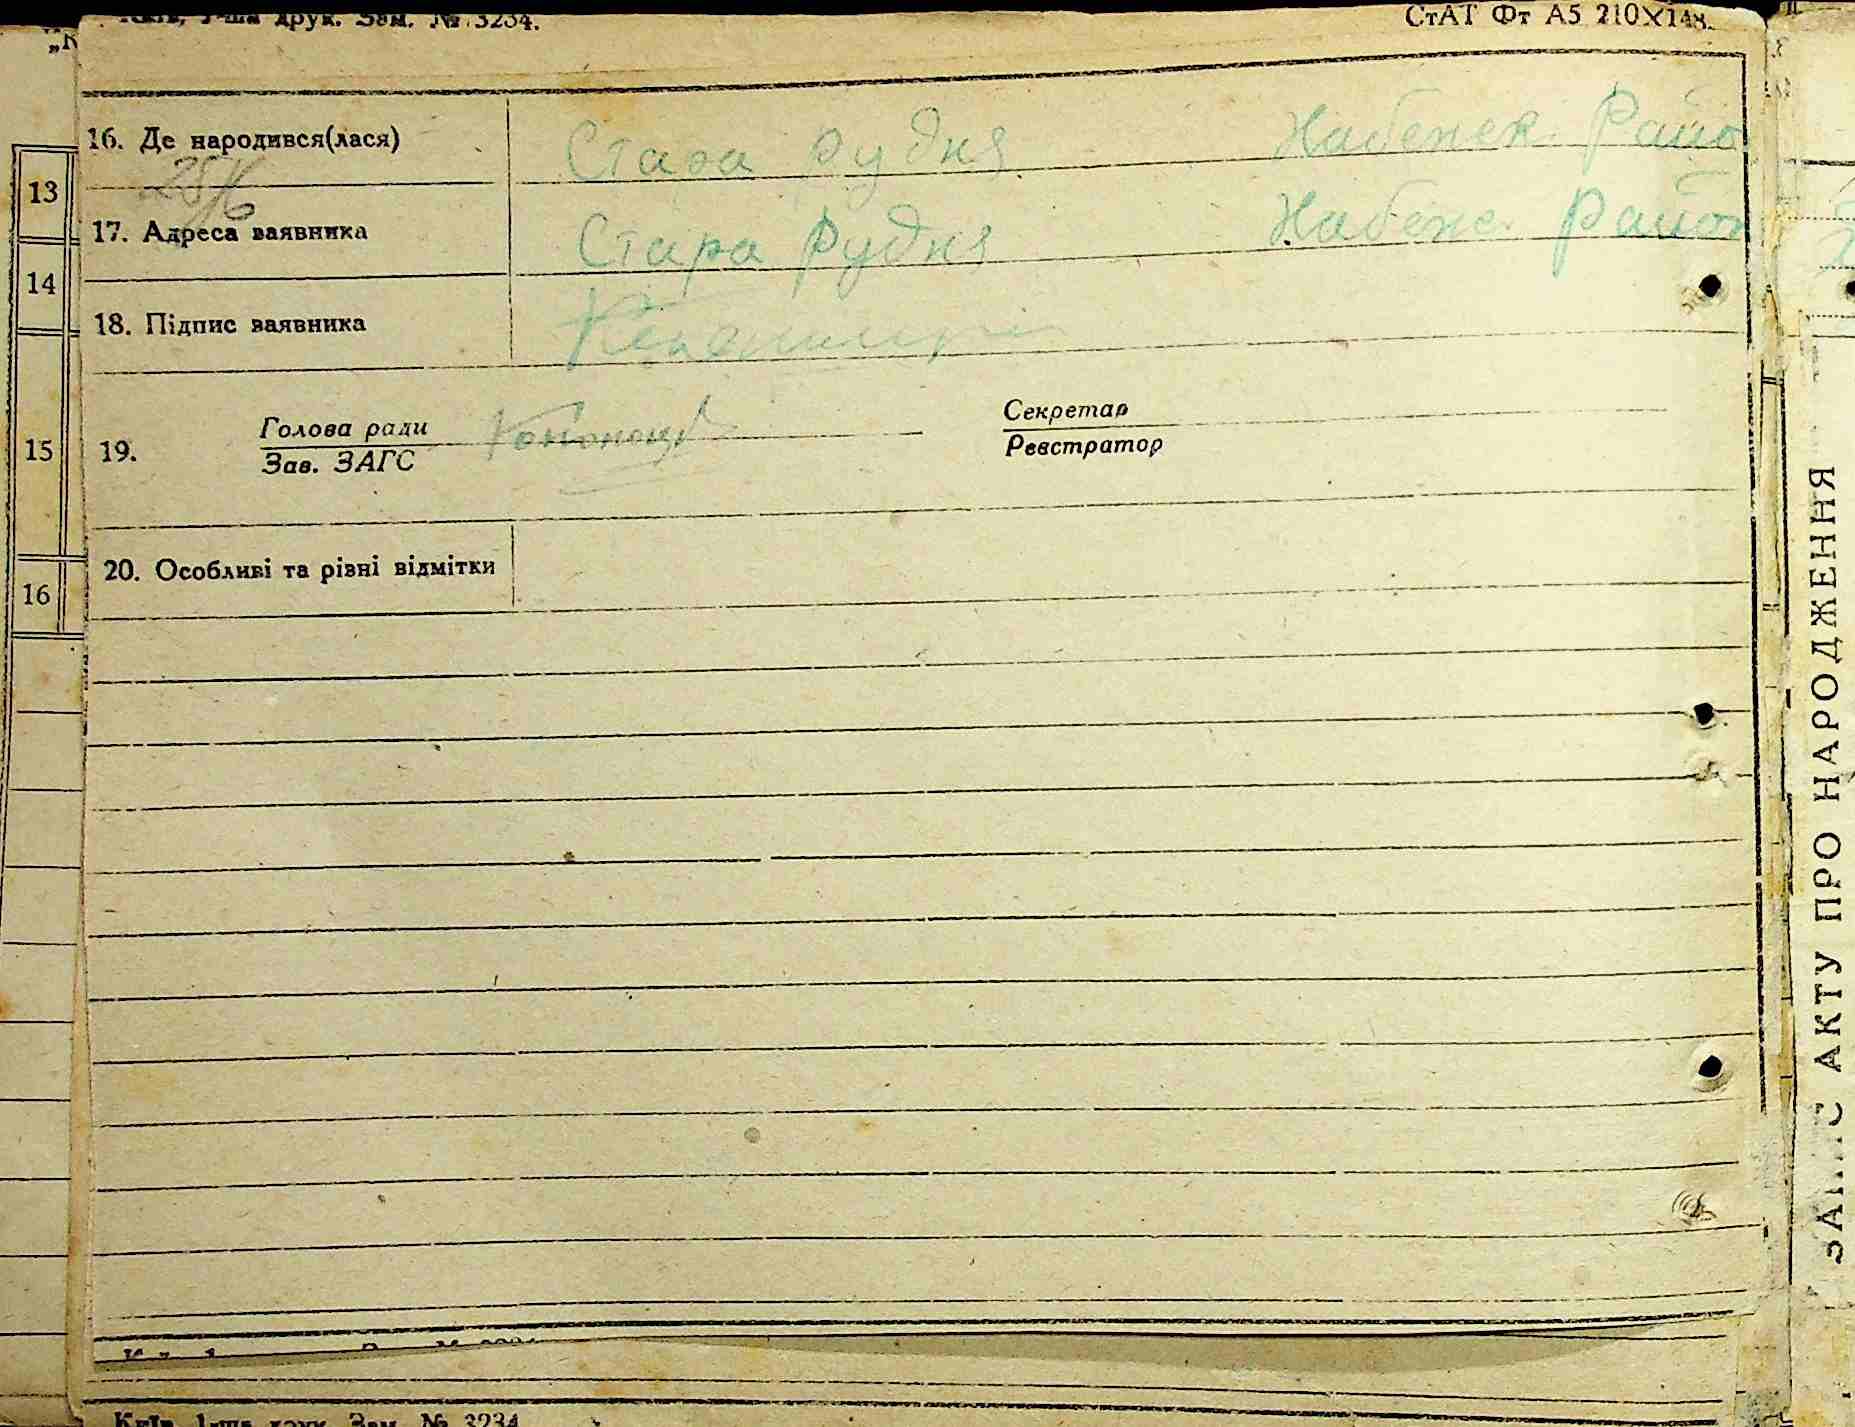 Київ, 1-ша друк. Зам. № 3234.
СтАТ Фт А5 210×148.
16. Де народився(лася)
Стара Рудня
Райо
25/6
17. Адреса заявника
Стара Рудня
Район
18. Підпис заявника
19.
Голова ради
Зав. ЗАГС
Секретар
Реєстратор
20. Особливі та різні відмітки
13
14
15
16
ЗАПИС АКТУ ПРО НАРОДЖЕННЯ
Київ, 1-ша друк. Зам. № 3234